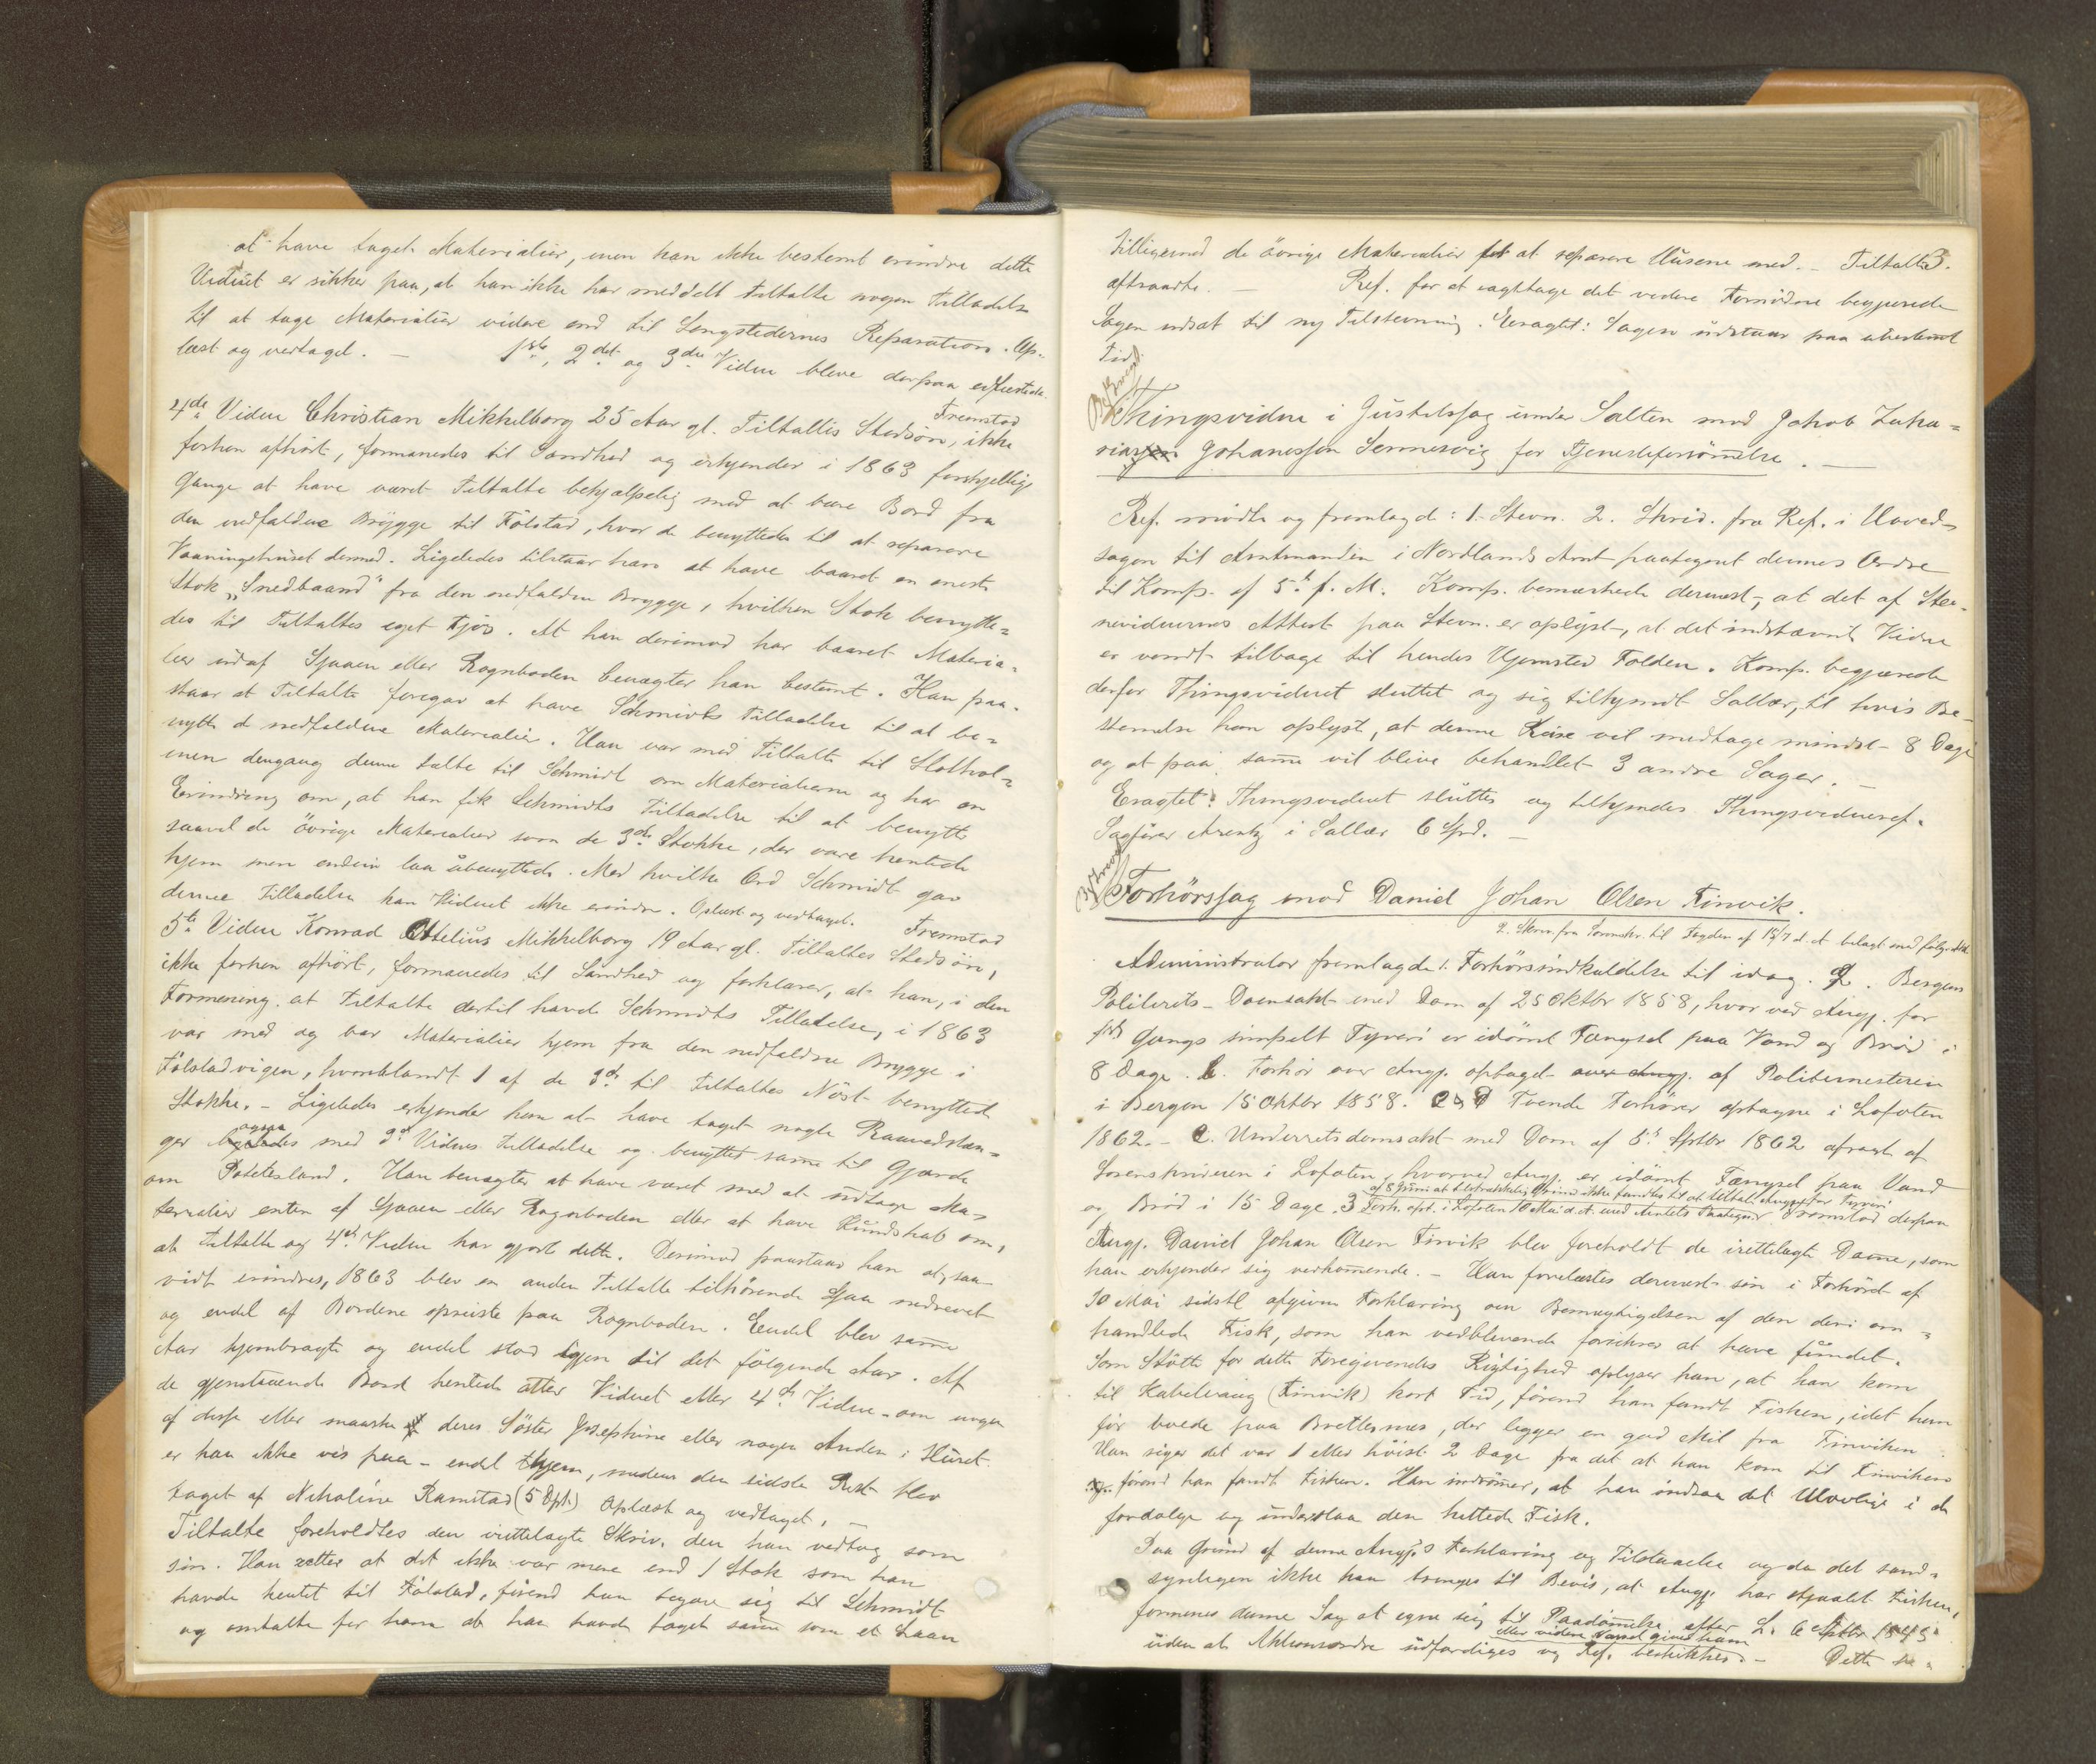 at have taget Materialier, men kan ikke bestemt erindre dette
Vidnet er sikker paa, at han ikke har meddelt tiltalte nogen Tilladelse
til at tage Materialier videre end til Længstedernes Reparation. Op-
læst og vedtaget. — 1ste, 2det og 3die Vidne bleve derpaa edfæstede.
Fremstod
4de Vidne Christian Mikkelborg 25 Aar gl. Tiltaltes Stedsön, ikke
forhen afhört, formanedes til Sandhed og erkjender i 1863 forskjellige
Gange at have været Tiltalte behjælpelig med at bære Bord fra
den nedfaldne Brygge til Fölstad, hvor de benyttedes til at reparere
Vaaningshuset dermed. Ligeledes tilstaar han at have baaret en eneste
Stok „Snedbaand" fra den nedfaldne Brygge, hvilken Stok benytte=
des til Tiltaltes eget Fjös. At han derimod har baaret Materia-
lier ud af Sjaaen eller Rognboden benægter han bestemt. Han paa-
staar at Tiltalte foregav at have Schmidts Tilladelse til at be=
nytte de nedfaldne Materialier. Han var med Tiltalte til Slothol=
men dengang denne talte til Schmidt om Materialierne og har en
Erindring om, at han fik Schmidts Tilladelse til at benytte
saavel de övrige Materialier som de 3de Stokke, der vare hentede
hjem men endnu laa übenyttede. Med hvilke Ord Schmidt gav
denne Tilladelse kan Vidnet ikke erindre. Oplæst og vedtaget. Fremstod
5te Vidne Konrad Mikkelborg 19 Aar gl. Tiltaltes Stedsön,
ikke forhen afhört, formanedes til Sandhed og forklarer, at han, i den
Formening at Tiltalte dertil havde Schmidts Tilladelse, i 1863
var med og bar Materialier hjem fra den nedfaldne Brygge i
Fölstadvigen, hvoriblandt 1 af de 3de til Tiltaltes Nöst benyttede
Stokke. — Ligeledes erkjender han at have taget nogle Raavedstæn=
ger ogsaa med 3die Vidnes Tilladelse og benyttet samme til Gjærde
om Potetesland. Han benægter at have været med at üdtage Ma=
terialier enten af Sjaaen eller Rognboden eller at have Kündskab om,
at Tiltalte og 4de Vidne har gjort dette. Derimod paastaar han at, saa-
vidt erindres, 1863 blev en anden Tiltalte tilhörende Sjaa nedrevet
og endel af Bordene opreiste paa Rognboden. Endel blev samme
Aar hjembragte og endel stod igjen til det fölgende Aar. Af
de gjenstaaende Bord hentede atter Vidnet eller 4de Vidne — om nogen
af disse eller maaske deres Söster Josephine eller nogen Anden i Huset
er han ikke vis paa — endel hjem, medens den sidste Rest blev
taget af Nikoline Ramstad (5 Spt.) Oplæst og vedtaget. —
Tiltalte foreholdtes den irettelagte Skriv. den han vedtog som
sin. Han retter at det ikke var mere end 1 Stok som han
havde hentet til Fölstad, förend han begav sig til Schmidt
og omtalte for ham at han havde taget samme som et Laan
3.
tilligemed de övrige Materialier for at reparere Husene med. — Tiltalte
aftraadte. — Ref. for at iagttage det videre Fornödne begjærede
Sagen udsat til ny Tilstevning. Eragtet: Sagen üdstaar paa ubestemt
Tid.
Thingsvidne i Jüstitssag ünder Salten mod Jakob Zaka=
rias Johanessen Sennesvig for Tjenesteforsömmelse. —
Ref. mödte og fremlagde: 1. Stevn. 2. Skriv. fra Ref. i Hoved-
sagen til Amtmanden i Nordlands Amt paategnet dennes Ordre
til Komp. af 5te f. M. Komp. bemærkede dernæst, at det af Stev-
nevidnernes Attest paa Stevn. er oplyst, at det indstævnte Vidne
er vendt tilbage til hendes Hjemsted Folden. Komp. begjærede
derfor Thingsvidnet sluttet og sig tilkjendt Sallær, til hvis Be-
stemmelse han oplyst, at denne Reise vil medtage mindst 8 Dage
og at paa samme vil blive behandlet 3 andre Sager. —
Eragtet: Thingsvidnet slüttes og tilkjendes Thingsvidneref.
Sagförer Arentz i Sallær 6 Spd. —
Forhörssag mod Daniel Johan Olsen Finvik.
2. Skriv. fra Sorenskr. til Fogden af 15/7 d. A. belagt med fölgende
Administrator fremlagde 1. Forhörsindkaldelse til idag. Bergens
Politirets-Domsakt med Dom af 25 Oktbr 1858, hvor ved Angj. for
1ste Gangs simpelt Tyveri er idömt Fængsel paa Vand og Bröd i
8 Dage. Forhör over Angj. optaget af Politimesteren
i Bergen 15 Oktbr 1858. Tvende Forhörer optagne i Lofoten
1862. — Underrets domsakt med Dom af 5te Sptbr 1862 afsagt af
Sorenskriveren i Lofoten, hvorved Angj. er idömt Fængsel paa Vand
af 8 Juni at tilstrækkelig Grund ikke fandtes til at tiltale Angj. for Tyveri
og Bröd i 15 Dage. 3 Forh. opt. i Lofoten 10 Mai d. A. med Amtets Paategn. Fremstod derpaa
Angj. Daniel Johan Olsen Finvik blev foreholdt de irettelagte Domme, som
han erkjender sig vedkommende. — Han forelæstes dernæst sin i Forhöret af
10 Mai sidstl. afgivne Forklaring om Bemægtigelsen af den deri om=
handlede Fisk, som han vedblivende forsikrer at have fündet.
Som Stötte for dette Foregivendes Rigtighed oplyser han, at han kom
til Kabelvaag (Finvik) kort Tid, förend han fandt Fisken, idet han
för boede paa Brettesnes, der ligger en god Mil fra Finviken
Han siger det var 1 eller höist 2 Dage fra det at han kom til Finviken
förend han fandt Fisken. Han indrömmer, at han indsaa det Ulovlige i at
fordölge og ünderslaa den hittede Fisk.
Paa Grund af denne Angj.s Forklaring og Tilstaaelse og da det sand=
synligen ikke kan bringes til Bevis, at Angj. har stjaalet Fisken,
formenes denne Sag at egne sig til Paadömmelse efter L. 6 Sptbr 1845
eller videre Varsel gives ham
üden at Aktionsordre üdfærdiges og Ref. beskikkes. — Dette